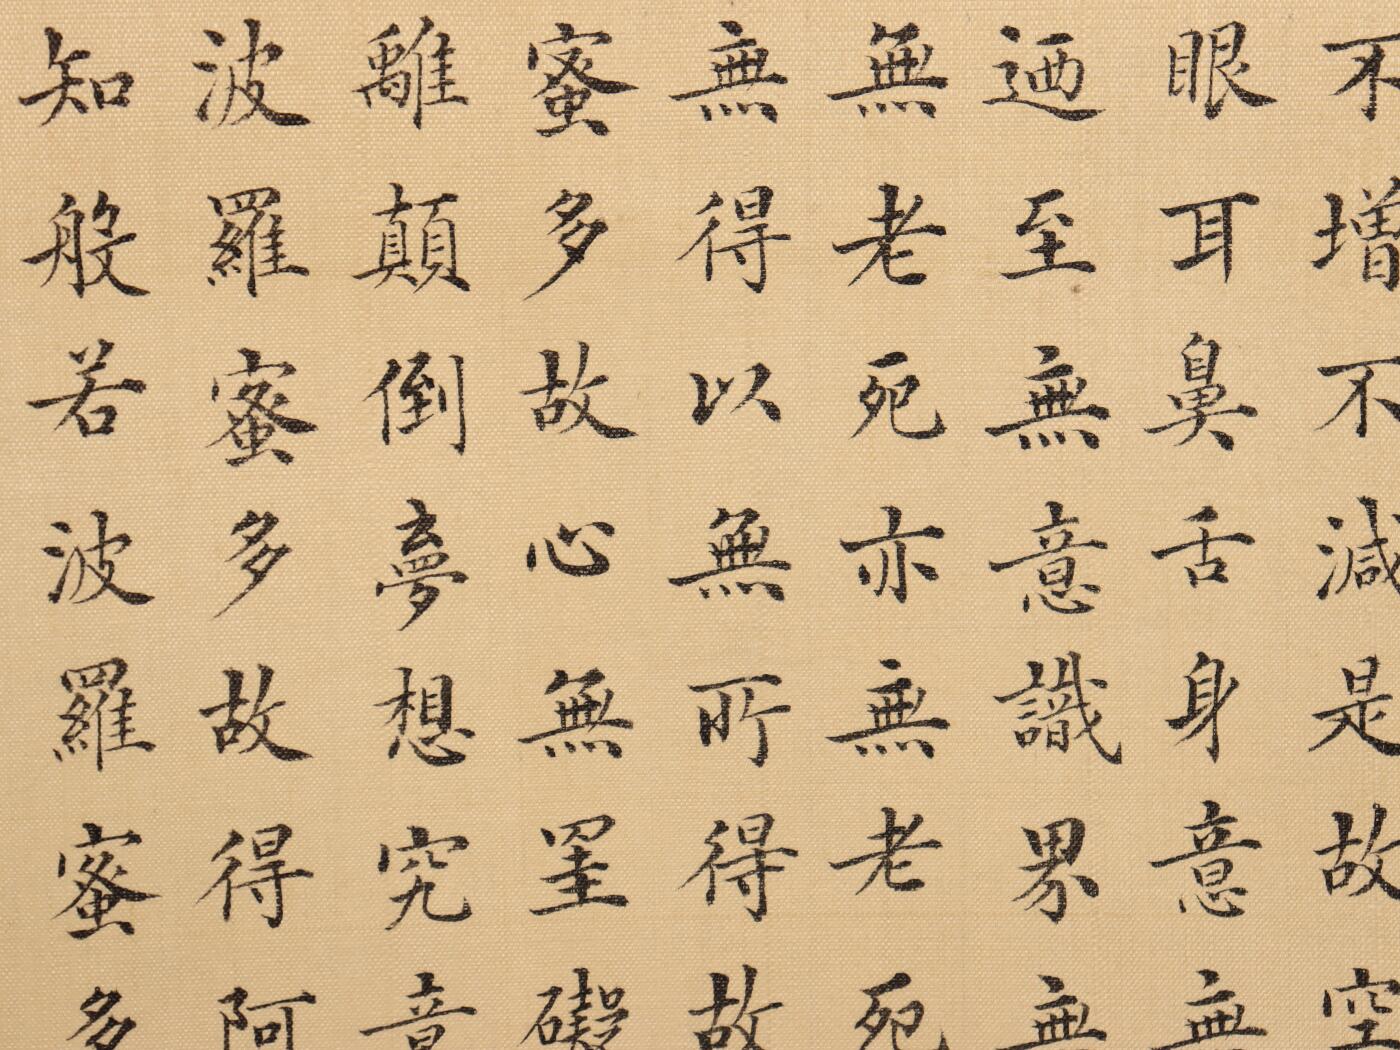 不增不減是故空
眼耳鼻舌身意無
迺至無意識界無
無老死亦無老死
無得以無所得故
蜜多故心無罣礙
離顛倒夢想究竟
波羅蜜多故得阿
知般若波羅蜜多